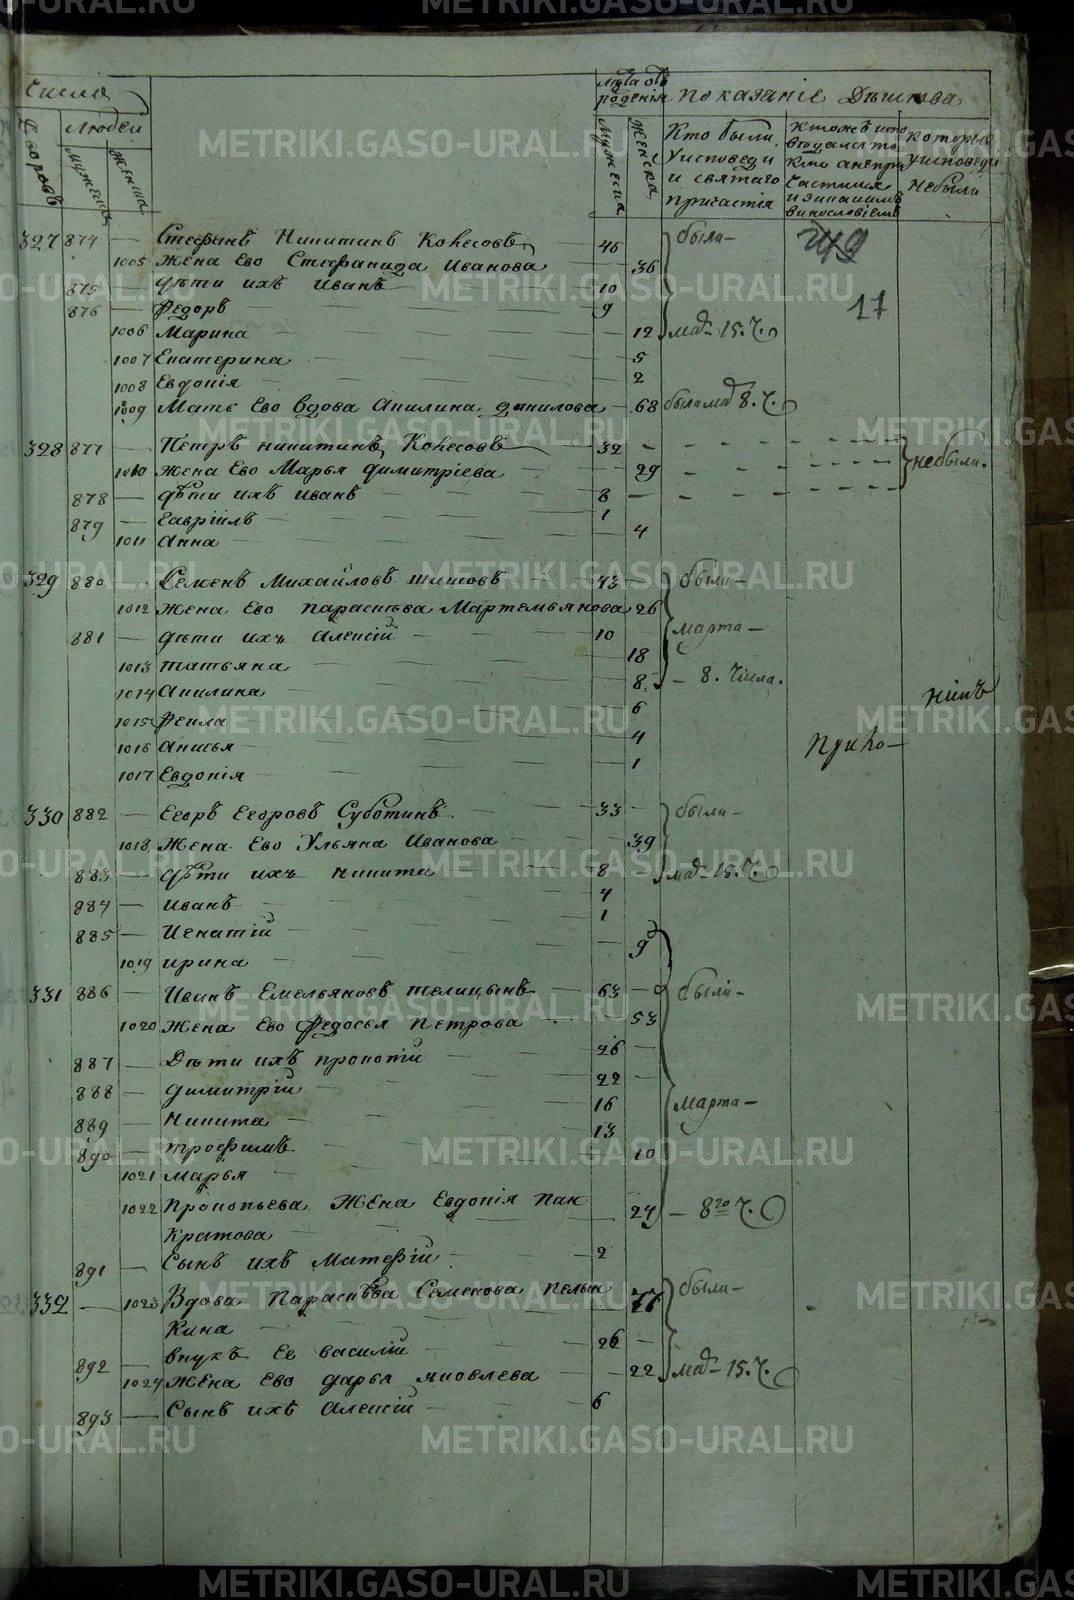 Числа
Дворовъ
Людей
Мужеска
Женска
Лѣта отъ
рѡденїя
Мужеска
Женска
показанїе Дѣиства
Кто были
Уисповеди
и святаго
причастїя
которые
уисповеди
небыли
327 874 — Стефанъ Никитинъ Колесовъ — 46 были —
1005 Жена Ево Стефанида Иванова — 36
875 — дѣти ихъ Иванъ — 10
876 — Федоръ — 9 17
1006 Марина — 12 мар 15. Ч.
1007 Екатерина — 5
1008 Евдокія — 2
1009 Мать Ево вдова Акилина данилова — 68 были мар 8. Ч.
328 877 — Петръ никитинъ Колесовъ — 32
1010 Жена Ево Марья димитріева — 29 небыли.
878 — дѣти ихъ иванъ — 8
879 — Гавріилъ — 1
1011 Анна — 4
329 880 — Семенъ Михайловъ шишовъ — 43 — были —
1012 Жена Ево парасковья Мартемьянова 26
881 — дѣти ихъ Алексій — 10 марта —
1013 татьяна — 18
1014 Акилина — 8. — 8. Числа.
нікъ
1015 Фекла — 6
1016 Анисья — 4 Прихо—
1017 Евдокія — 1
330 882 — Егоръ Егоровъ Суботинъ — 33 — были —
1018 Жена Ево Ульяна Иванова — 39
883 — дѣти ихъ никита — 8 мар 15. Ч.
884 — иванъ — 4
885 — Игнатій — 1
1019 ирина — 9
331 886 — Иванъ Емельяновъ телицынъ — 63 — были —
1020 Жена Ево федосья петрова — 53
887 — Дѣти ихъ прокопій — 26 —
888 — димитрій — 22 —
889 — Никита — 16 марта —
890 — трофимъ — 13
1021 марья — 10
1022 прокопьева Жена Евдокія пан
кратова — 24 — 8го Ч.
891 — Сынъ ихъ Матфій — 2
332 — 1023 Вдова парасковья Семенова пельи
кина — 77 были —
892 — внукъ Ее василій — 26 —
1024 Жена Ево дарья яковлева — 22 мар 15. Ч.
893 — Сынъ ихъ Алексій — 6
METRIKI.GASO-URAL.RU